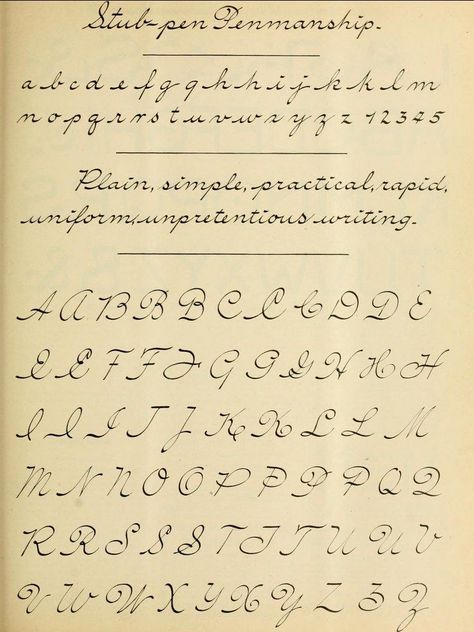 Stub-pen Penmanship.
a b c d e f g g h h i j k k l m
n o p q r r s t u v w x y z z 1 2 3 4 5
Plain, simple, practical, rapid,
uniform, unpretentious writing.
A A B B B C C C D D E
E E F F F G G G H H H
I I I J J K K L L M
M N N O O P P P P Q Q
R R S S S T T T U U V
V W W X Y X Y Z Z Z